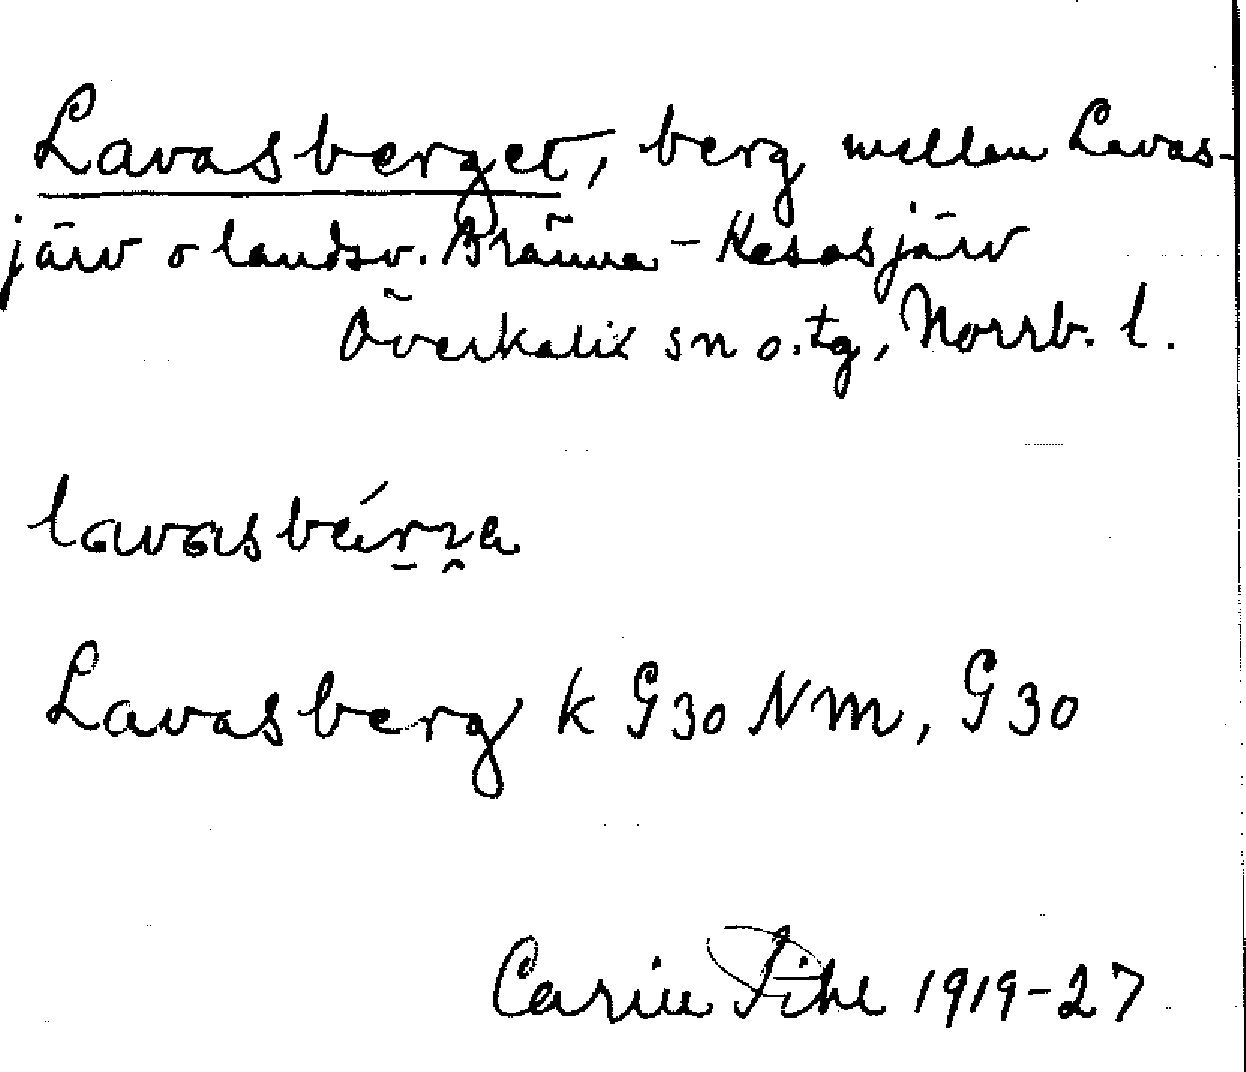 Lavasberget, berg mellan Lavas-
järv o landsv. Bränna - Kesasjärv
Överkalix sn o. tg, Norrb. l.
Lavasberg k G30 NM, G30
Carin Pihl 1919-27